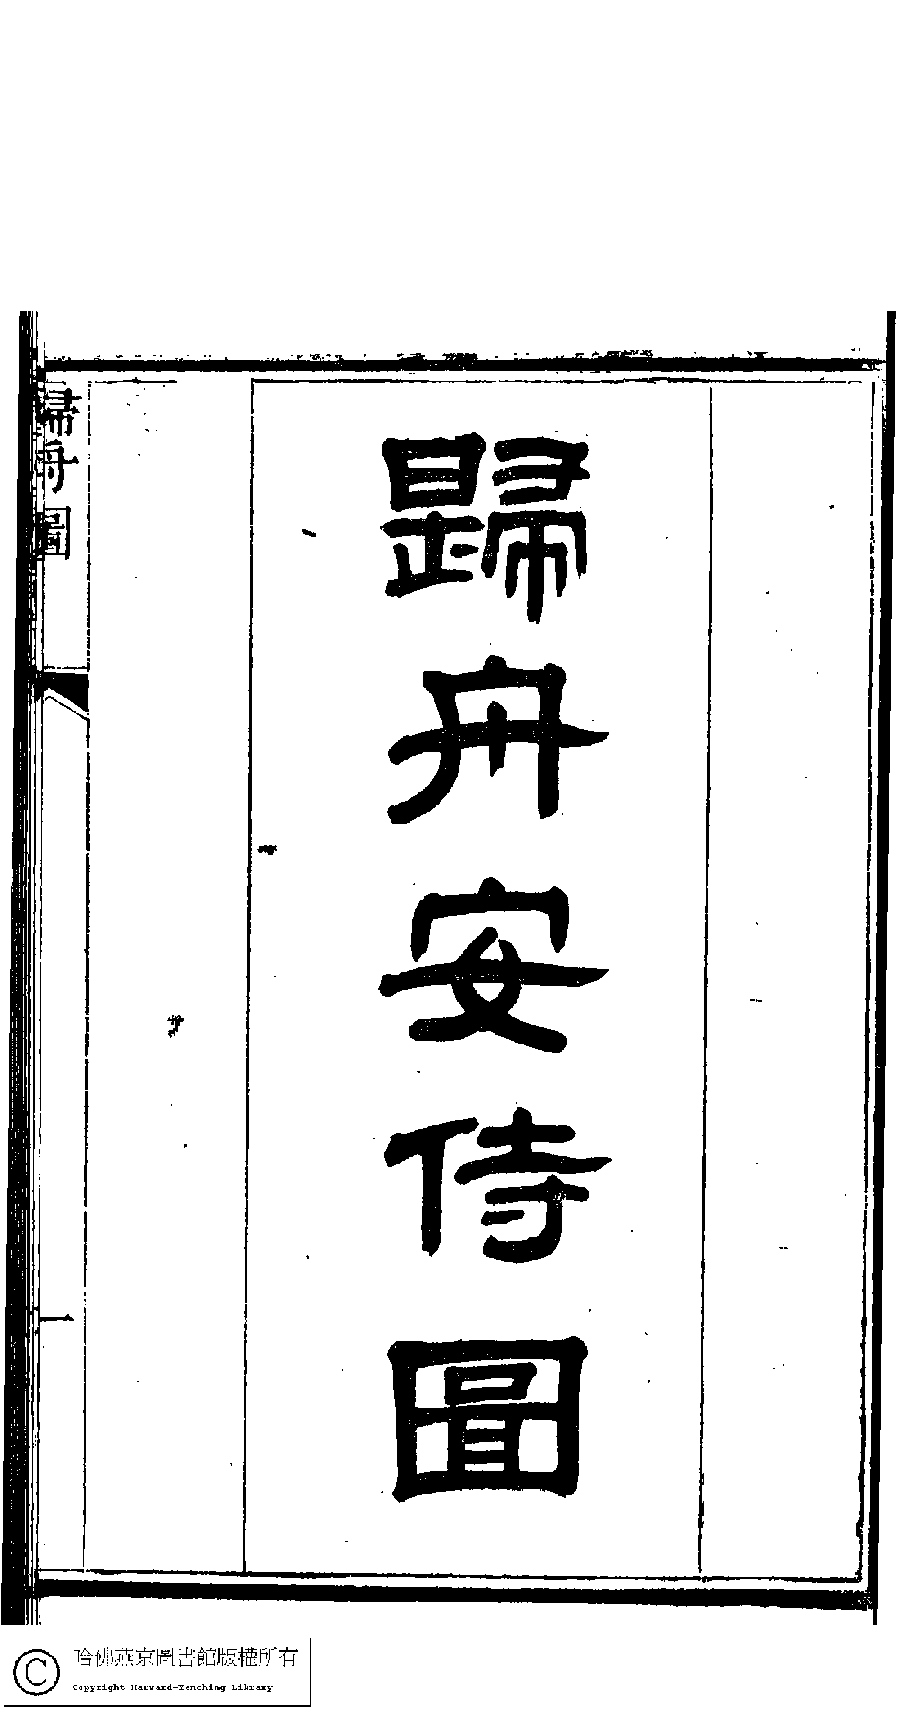 歸舟安侍圖
歸舟圖
一
哈佛燕京圖書館版權所有
Copyright Harvard-Yenching Library